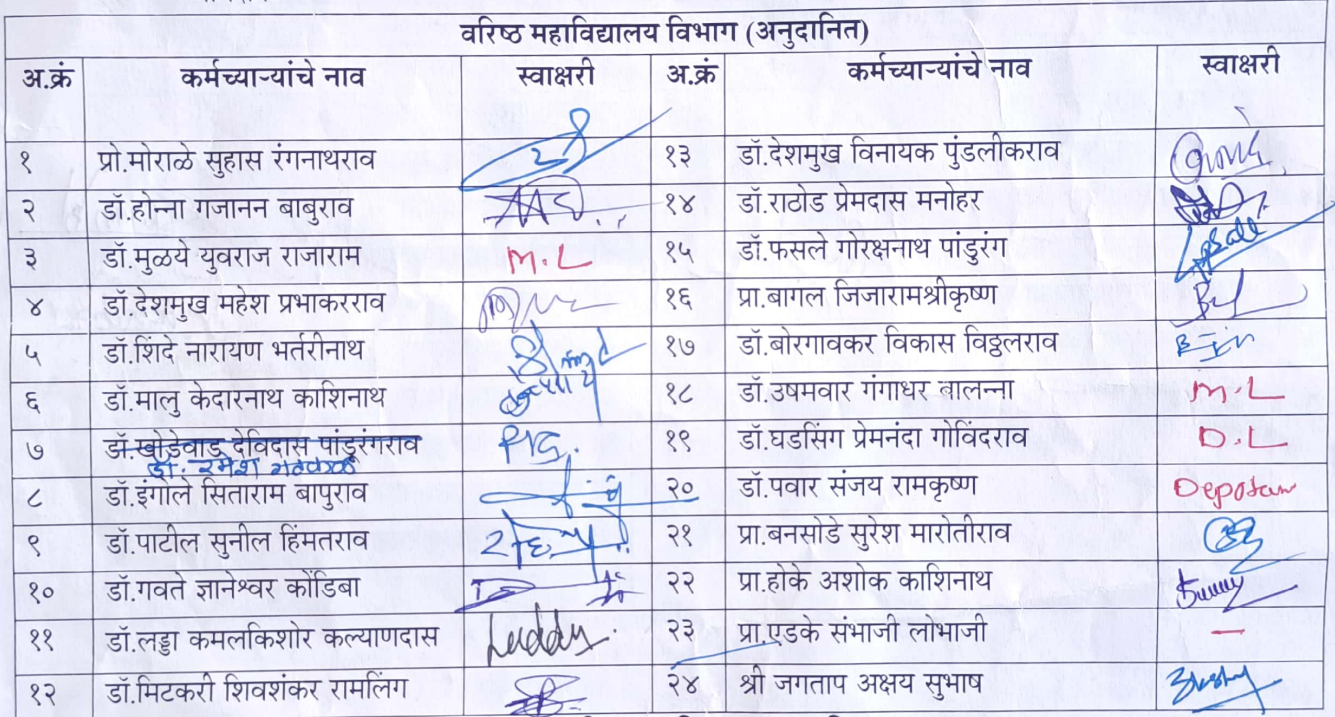 वरिष्ठ महाविद्यालय विभाग (अनुदानित)
अ.क्रं कर्मच्याऱ्यांचे नाव स्वाक्षरी अ.क्रं कर्मच्याऱ्यांचे नाव स्वाक्षरी
१ प्रो.मोराळे सुहास रंगनाथराव १३ डॉ.देशमुख विनायक पुंडलीकराव
२ डॉ.होन्ना गजानन बाबुराव १४ डॉ.राठोड प्रेमदास मनोहर
३ डॉ.मुळये युवराज राजाराम M.L १५ डॉ.फसले गोरक्षनाथ पांडुरंग
४ डॉ.देशमुख महेश प्रभाकरराव १६ प्रा.बागल जिजारामश्रीकृष्ण
५ डॉ.शिंदे नारायण भर्तरीनाथ १७ डॉ.बोरगावकर विकास विठ्ठलराव
६ डॉ.मालु केदारनाथ काशिनाथ १८ डॉ.उषमवार गंगाधर बालन्ना M.L
७ डॉ.खोडेवाड देविदास पांडूरंगराव १९ डॉ.घडसिंग प्रेमनंदा गोविंदराव D.L
डॉ. रमेश
८ डॉ.इंगोले सिताराम बापुराव २० डॉ.पवार संजय रामकृष्ण
९ डॉ.पाटील सुनील हिंमतराव २१ प्रा.बनसोडे सुरेश मारोतीराव
१० डॉ.गवते ज्ञानेश्वर कोंडिबा २२ प्रा.होके अशोक काशिनाथ
११ डॉ.लड्डा कमलकिशोर कल्याणदास २३ प्रा.एडके संभाजी लोभाजी —
१२ डॉ.मिटकरी शिवशंकर रामलिंग २४ श्री.जगताप अक्षय सुभाष